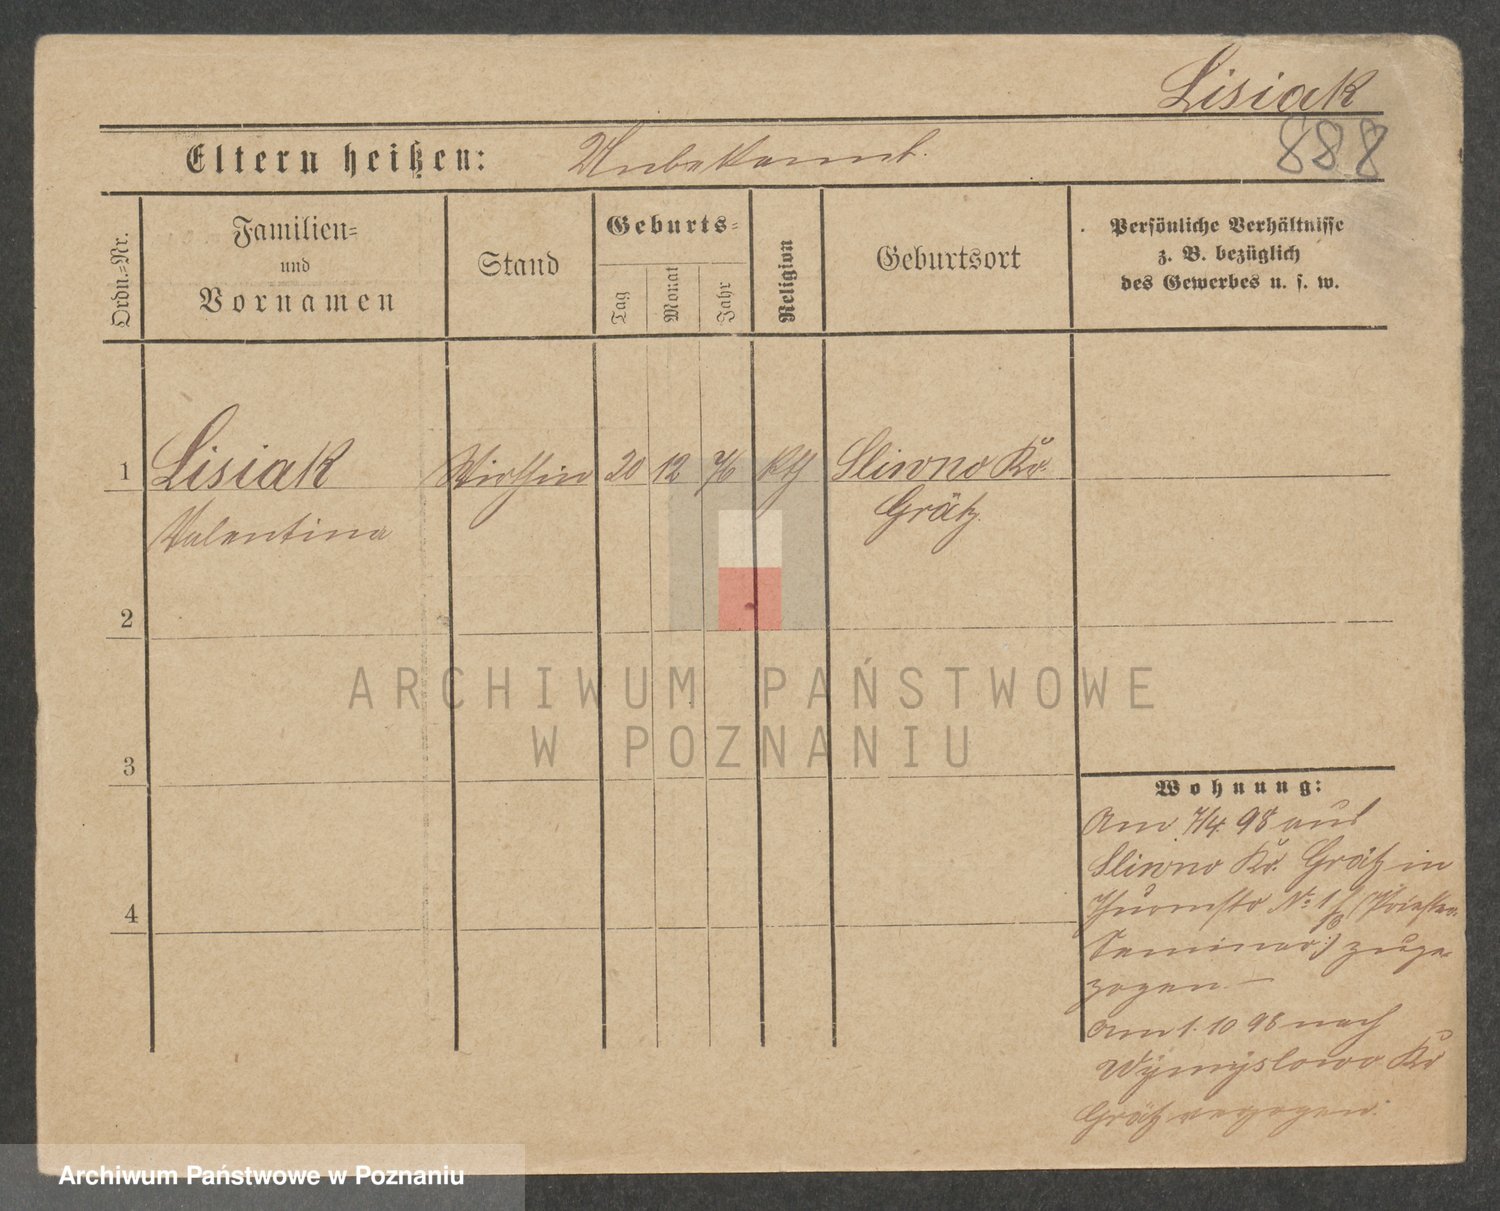 Lisiak
888
Eltern heißen: Unbekannt.
Ordn.=Nr.
Familien=
und
Vornamen
Stand
Geburts=
Tag
Monat
Jahr
Religion
Geburtsort
Persönliche Verhältnisse
z. B. bezüglich
des Gewerbes u. s. w.
1 Lisiak Wirthin 20 12 76 kth Sliwno Kr.
Valentina Grätz.
2
3
4
Wohnung:
Am 7/4 98 aus
Sliwno Kr. Grätz in
Thurmstr No 1 (Priester
Seminar) zuge-
zogen. —
Am 1. 10 98 nach
Wymyslowo Kr
Grätz
ARCHIWUM PAŃSTWOWE
W POZNANIU
Archiwum Państwowe w Poznaniu